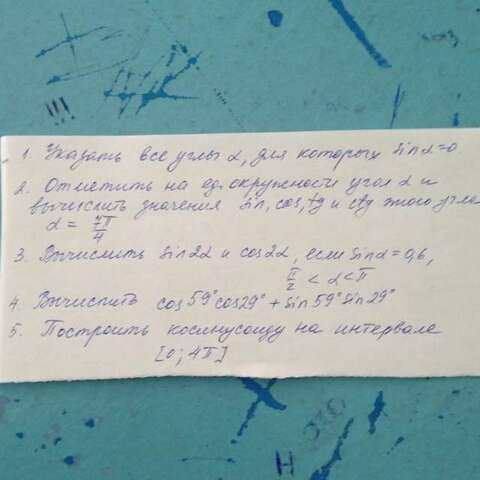 1. Указать все углы α, для которых sinα=0
2. Отметить на ед. окружности угол α и
вычислить значения sin, cos, tg и ctg этого угла
α = 7π/4
3. Вычислить sin2α и cos2α, если sinα=0,6,
π/2 < α < π
4. Вычислить cos59°cos29° + sin59°sin29°
5. Построить косинусоиду на интервале
[0; 4π]
!!!
Н